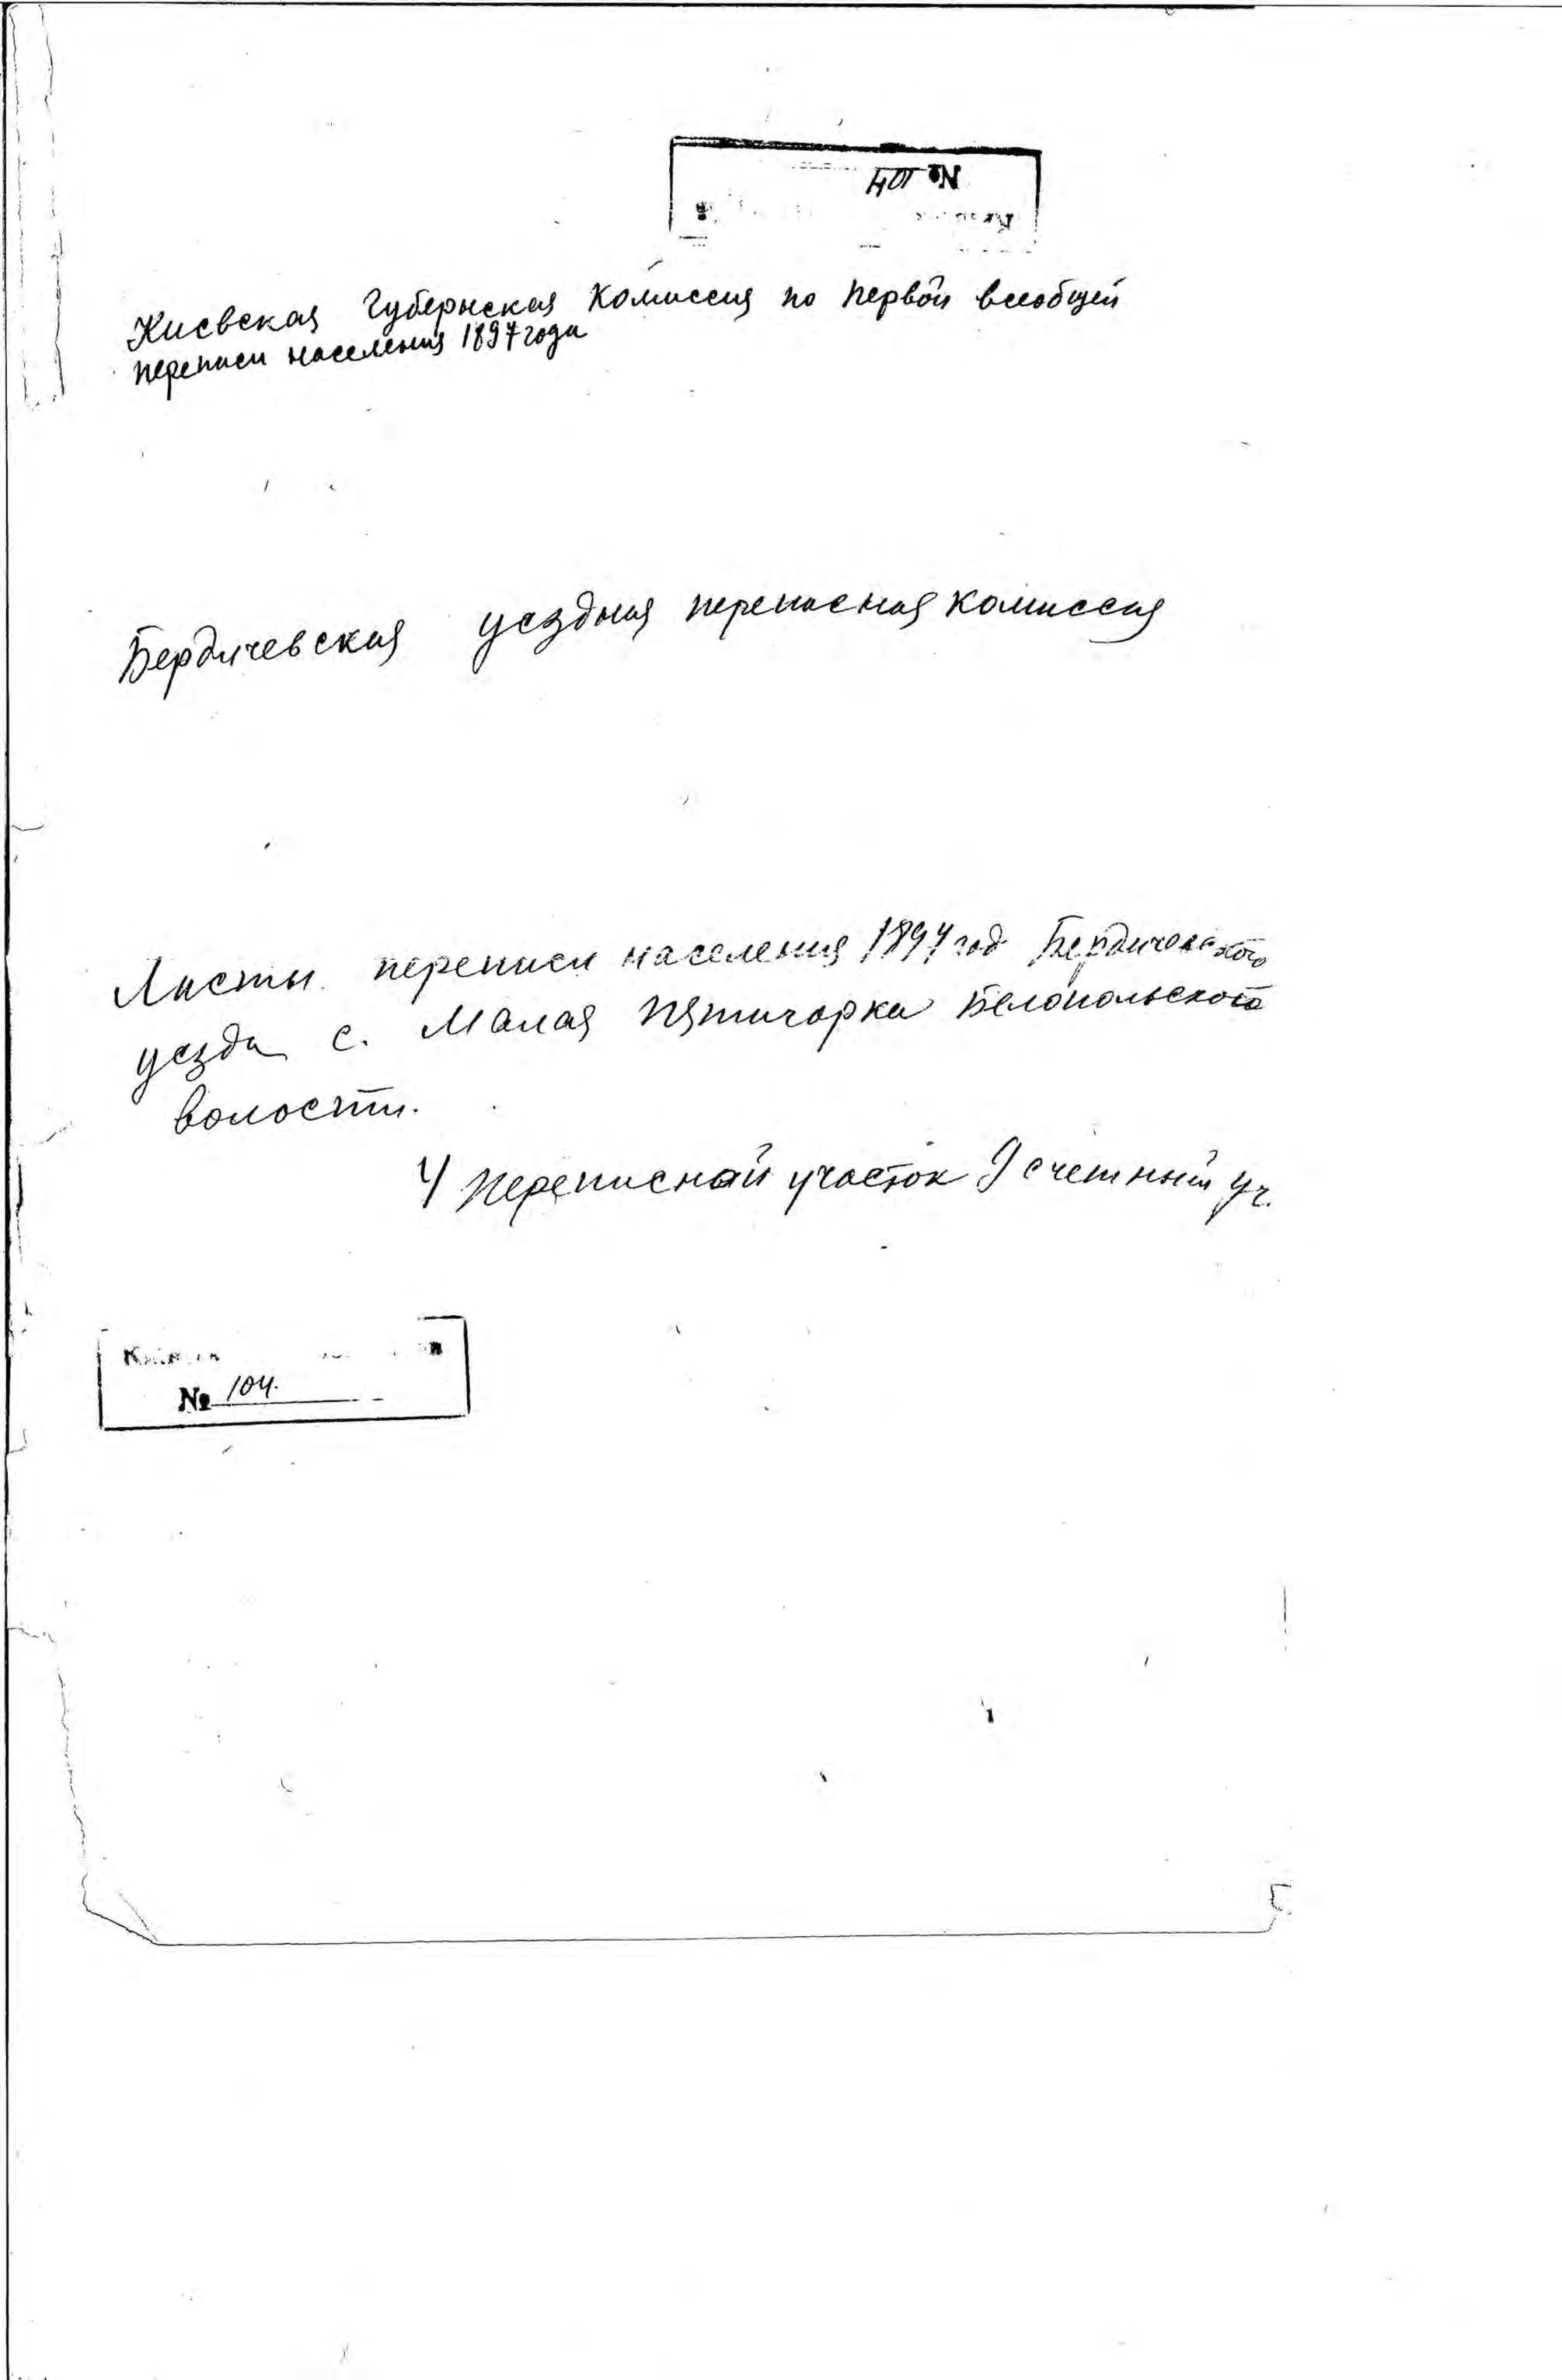 № 104
Киевская Губернская Комиссия по первой всеобщей
переписи населения 1897 года
Бердичевская уездная переписная комиссия
Листы переписи населения 1897 год Бердичевского
уезда с. Малая Пятигорка Белопольского
волости.
4 переписной участок 9 счетный уч.
№ 104.